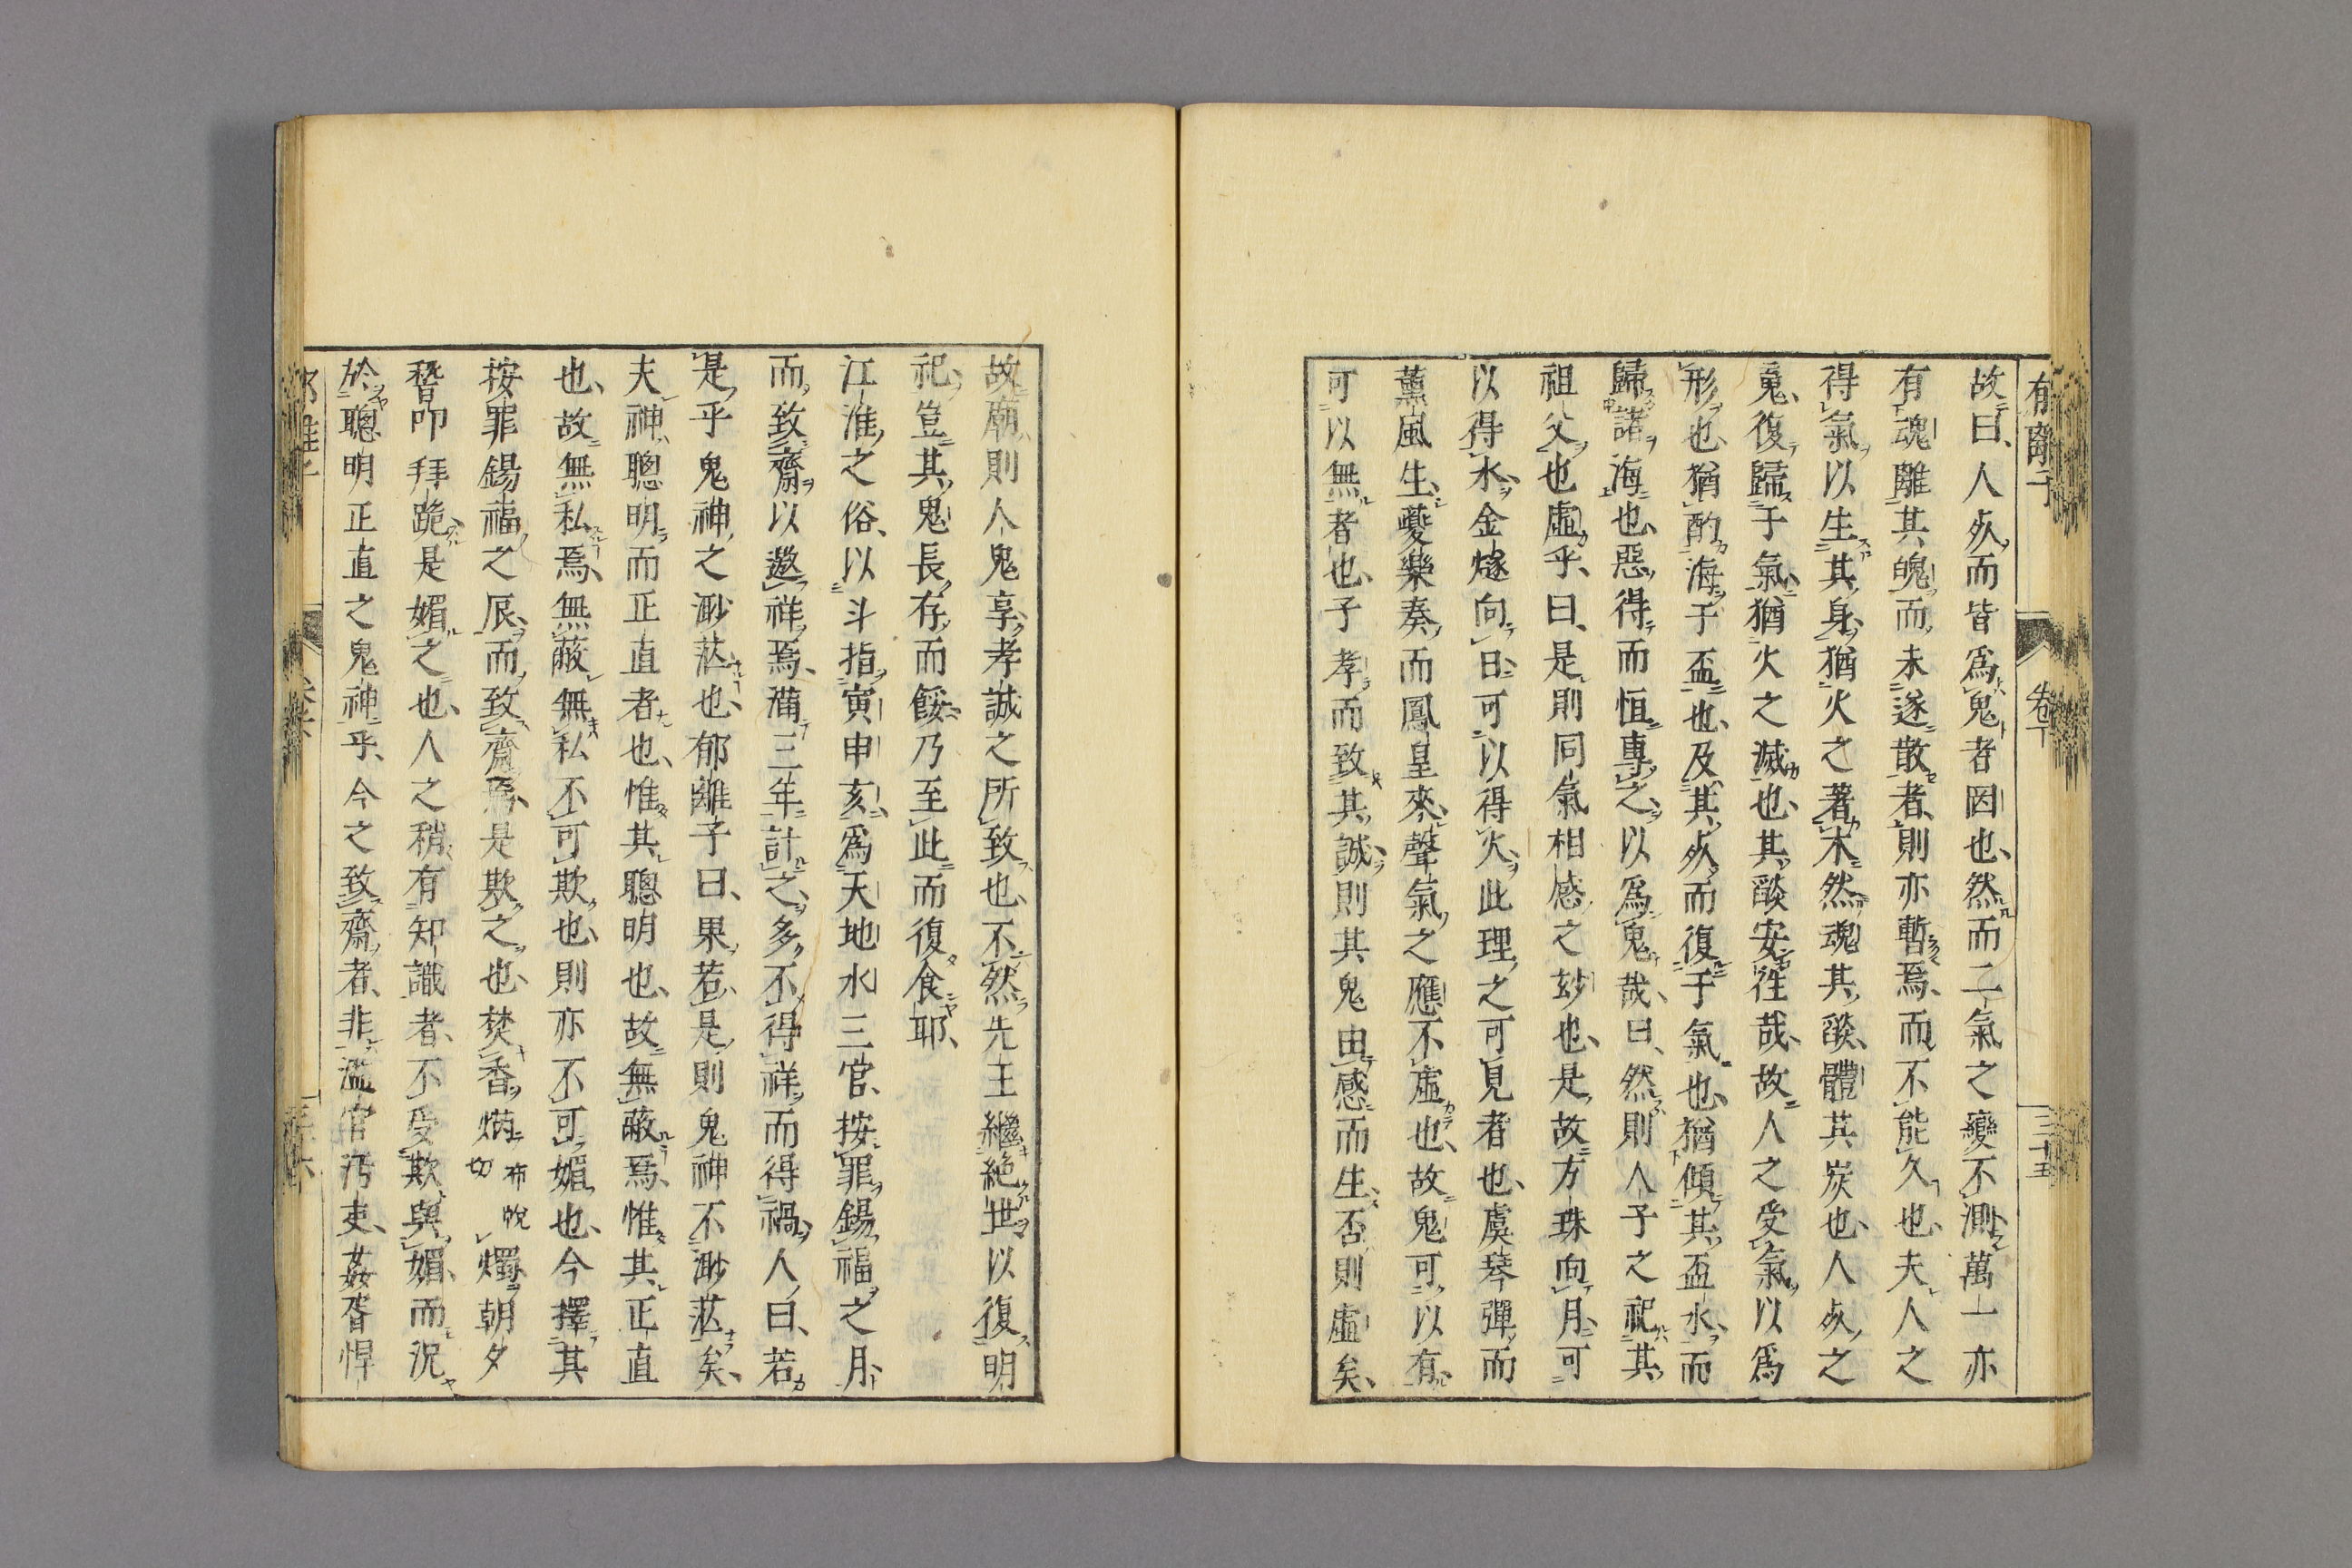 郁離子 卷下 三十五
故曰、人死而皆爲鬼者罔也、然而二氣之變不測萬一亦
有魂離其魄而未遂散者、則亦暫焉、而不能久也、夫人之
得氣以生其身、猶火之著木然、魂其燄、體其炭也、人死之
鬼、復歸于氣、猶火之滅也、其燄安徃哉、故人之受氣以爲
形也、猶酌海于盃也、及其死而復于氣也、猶傾其盃水而
歸諸海也、惡得而恒專之、以爲鬼哉、曰、然則人子之祀其
祖父也虛乎、曰、是則同氣相感之玅也、是故方珠向月、可
以得水、金燧向日、可以得火、此理之可見者也、虞琴彈而
薰風生、夔樂奏而鳳皇來、聲氣之應不虛也、故鬼可以有
可以無者也、子孝而致其誠、則其鬼由感而生、否則虛矣、
故廟則人鬼享、孝誠之所致也、不然先王繼絕世以復明
祀、豈其鬼長存而餒乃至此而復食耶、
江淮之俗、以斗指寅申亥、爲天地水三官、按罪錫福之月、
而致齋以邀祥焉、滿三年計之、多不得祥、而得禍、人曰、若
是乎鬼神之渺茫也、郁離子曰、果若是、則鬼神不渺茫矣、
夫神聰明而正直者也、惟其聰明也、故無蔽焉、惟其正直
也、故無私焉、無蔽無私不可欺也、則亦不可媚也、今擇其
按罪錫福之辰、而致齋焉、是欺之也、焚香焫布悅切燭朝夕
稽叩拜跪是媚之也、人之稍有知識者、不受欺與媚、而況
於聰明正直之鬼神乎、今之致齋者、非濫官汚吏、姦胥悍